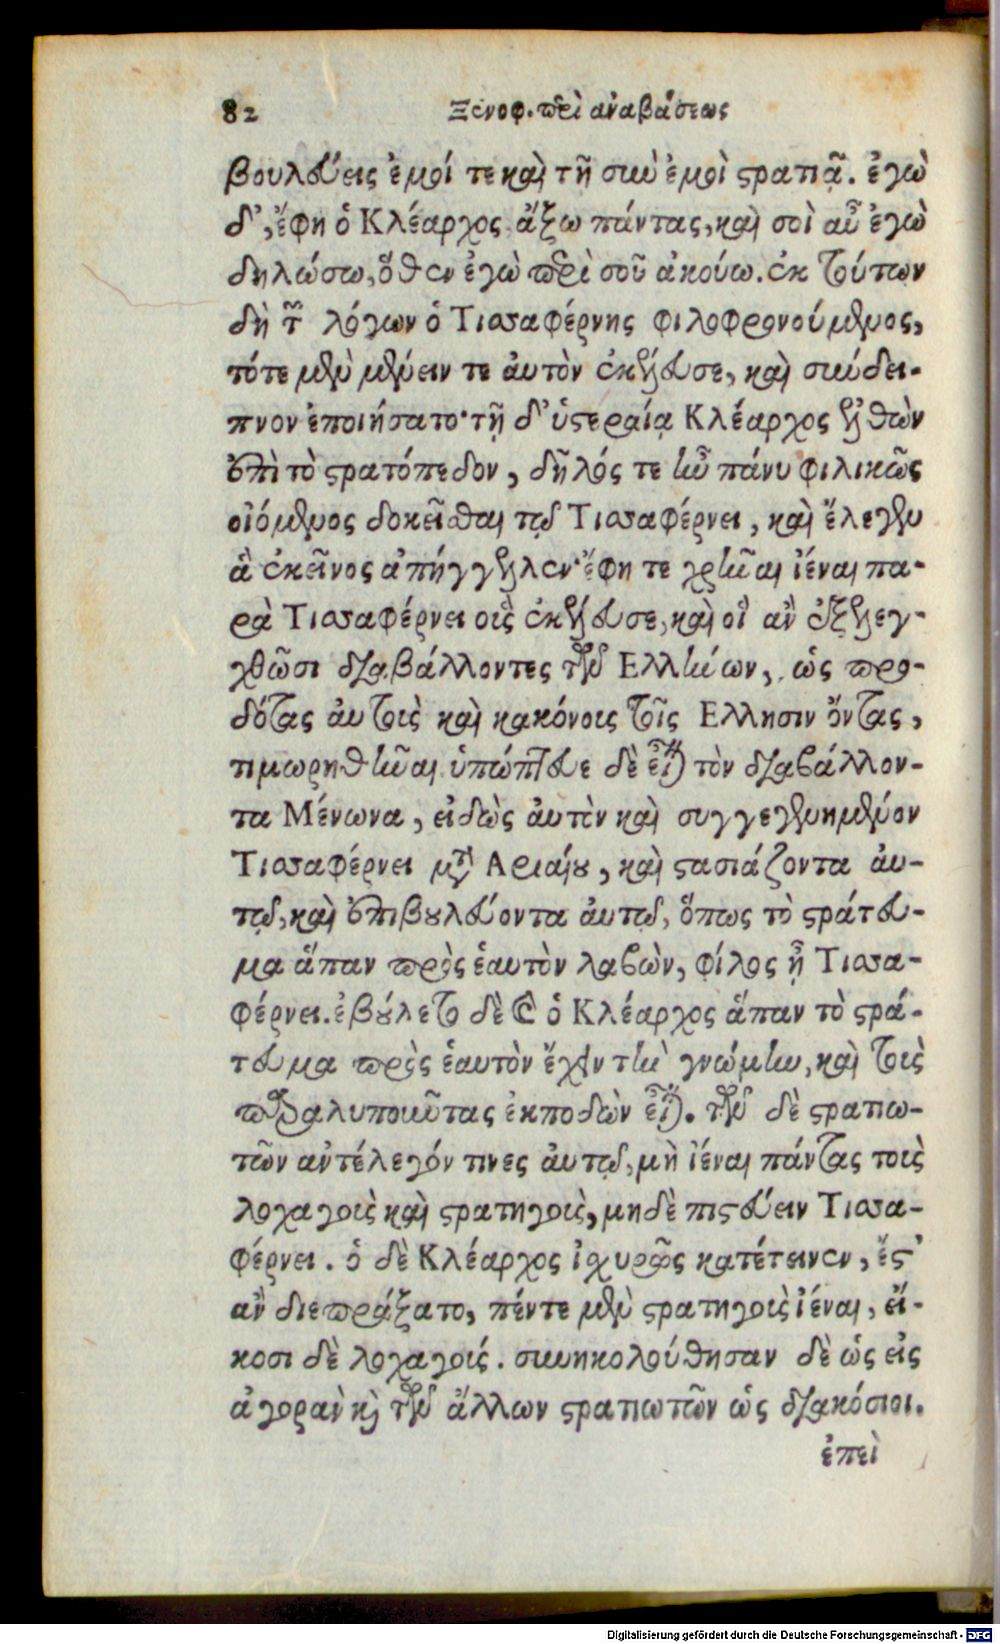 82 Ξενοφ. περὶ ἀναβάσεως
βουλεύεις ἐμοί τε καὶ τῇ σὺν ἐμοὶ στρατιᾷ. ἐγὼ
δ’, ἔφη ὁ Κλέαρχος ἄξω πάντας, καὶ σοὶ αὖ ἐγὼ
δηλώσω, ὅθεν ἐγὼ περὶ σοῦ ἀκούω. ἐκ τούτων
δὴ τῶν λόγων ὁ Τισσαφέρνης φιλοφρονούμενος,
τότε μὲν μένειν τε αὐτὸν ἐκέλευσε, καὶ σύνδει-
πνον ἐποιήσατο· τῇ δ’ ὑστεραίᾳ Κλέαρχος ἐλθὼν
ἐπὶ τὸ στρατόπεδον, δῆλός τε ἦν πάνυ φιλικῶς
οἰόμενος διακεῖσθαι τῷ Τισσαφέρνει, καὶ ἔλεγεν
ἃ ἐκεῖνος ἀπήγγελλεν· ἔφη τε χρῆναι ἰέναι πα-
ρὰ Τισσαφέρνει οἷς ἐκέλευσε, καὶ οἳ ἂν ἐξελεγ-
χθῶσι διαβάλλοντες τῶν Ελλήνων, ὡς προ-
δότας αὐτοὺς καὶ κακόνους τοῖς Ελλησιν ὄντας,
τιμωρηθῆναι. ὑπώπτευε δὲ εἶναι τὸν διαβάλλον-
τα Μένωνα, εἰδὼς αὐτὸν καὶ συγγεγενημένον
Τισσαφέρνει μετ’ Αριαίου, καὶ στασιάζοντα αὐ-
τῷ, καὶ ἐπιβουλεύοντα αὐτῷ, ὅπως τὸ στράτευ-
μα ἅπαν πρὸς ἑαυτὸν λαβὼν, φίλος ᾖ Τισσα-
φέρνει. ἐβούλετο δὲ καὶ ὁ Κλέαρχος ἅπαν τὸ στρά-
τευμα πρὸς ἑαυτὸν ἔχειν τὴν γνώμην, καὶ τοὺς
παραλυποῦντας ἐκποδὼν εἶναι. τῶν δὲ στρατιω-
τῶν ἀντέλεγόν τινες αὐτῷ, μὴ ἰέναι πάντας τοὺς
λοχαγοὺς καὶ στρατηγοὺς, μηδὲ πιστεύειν Τισσα-
φέρνει. ὁ δὲ Κλέαρχος ἰσχυρῶς κατέτεινεν, ἔστ’
ἂν διεπράξατο, πέντε μὲν στρατηγοὺς ἰέναι, εἴ-
κοσι δὲ λοχαγούς. συνηκολούθησαν δὲ ὡς εἰς
ἀγορὰν καὶ τῶν ἄλλων στρατιωτῶν ὡς διακόσιοι.
ἐπεὶ
Digitalisierung gefördert durch die Deutsche Forschungsgemeinschaft - DFG